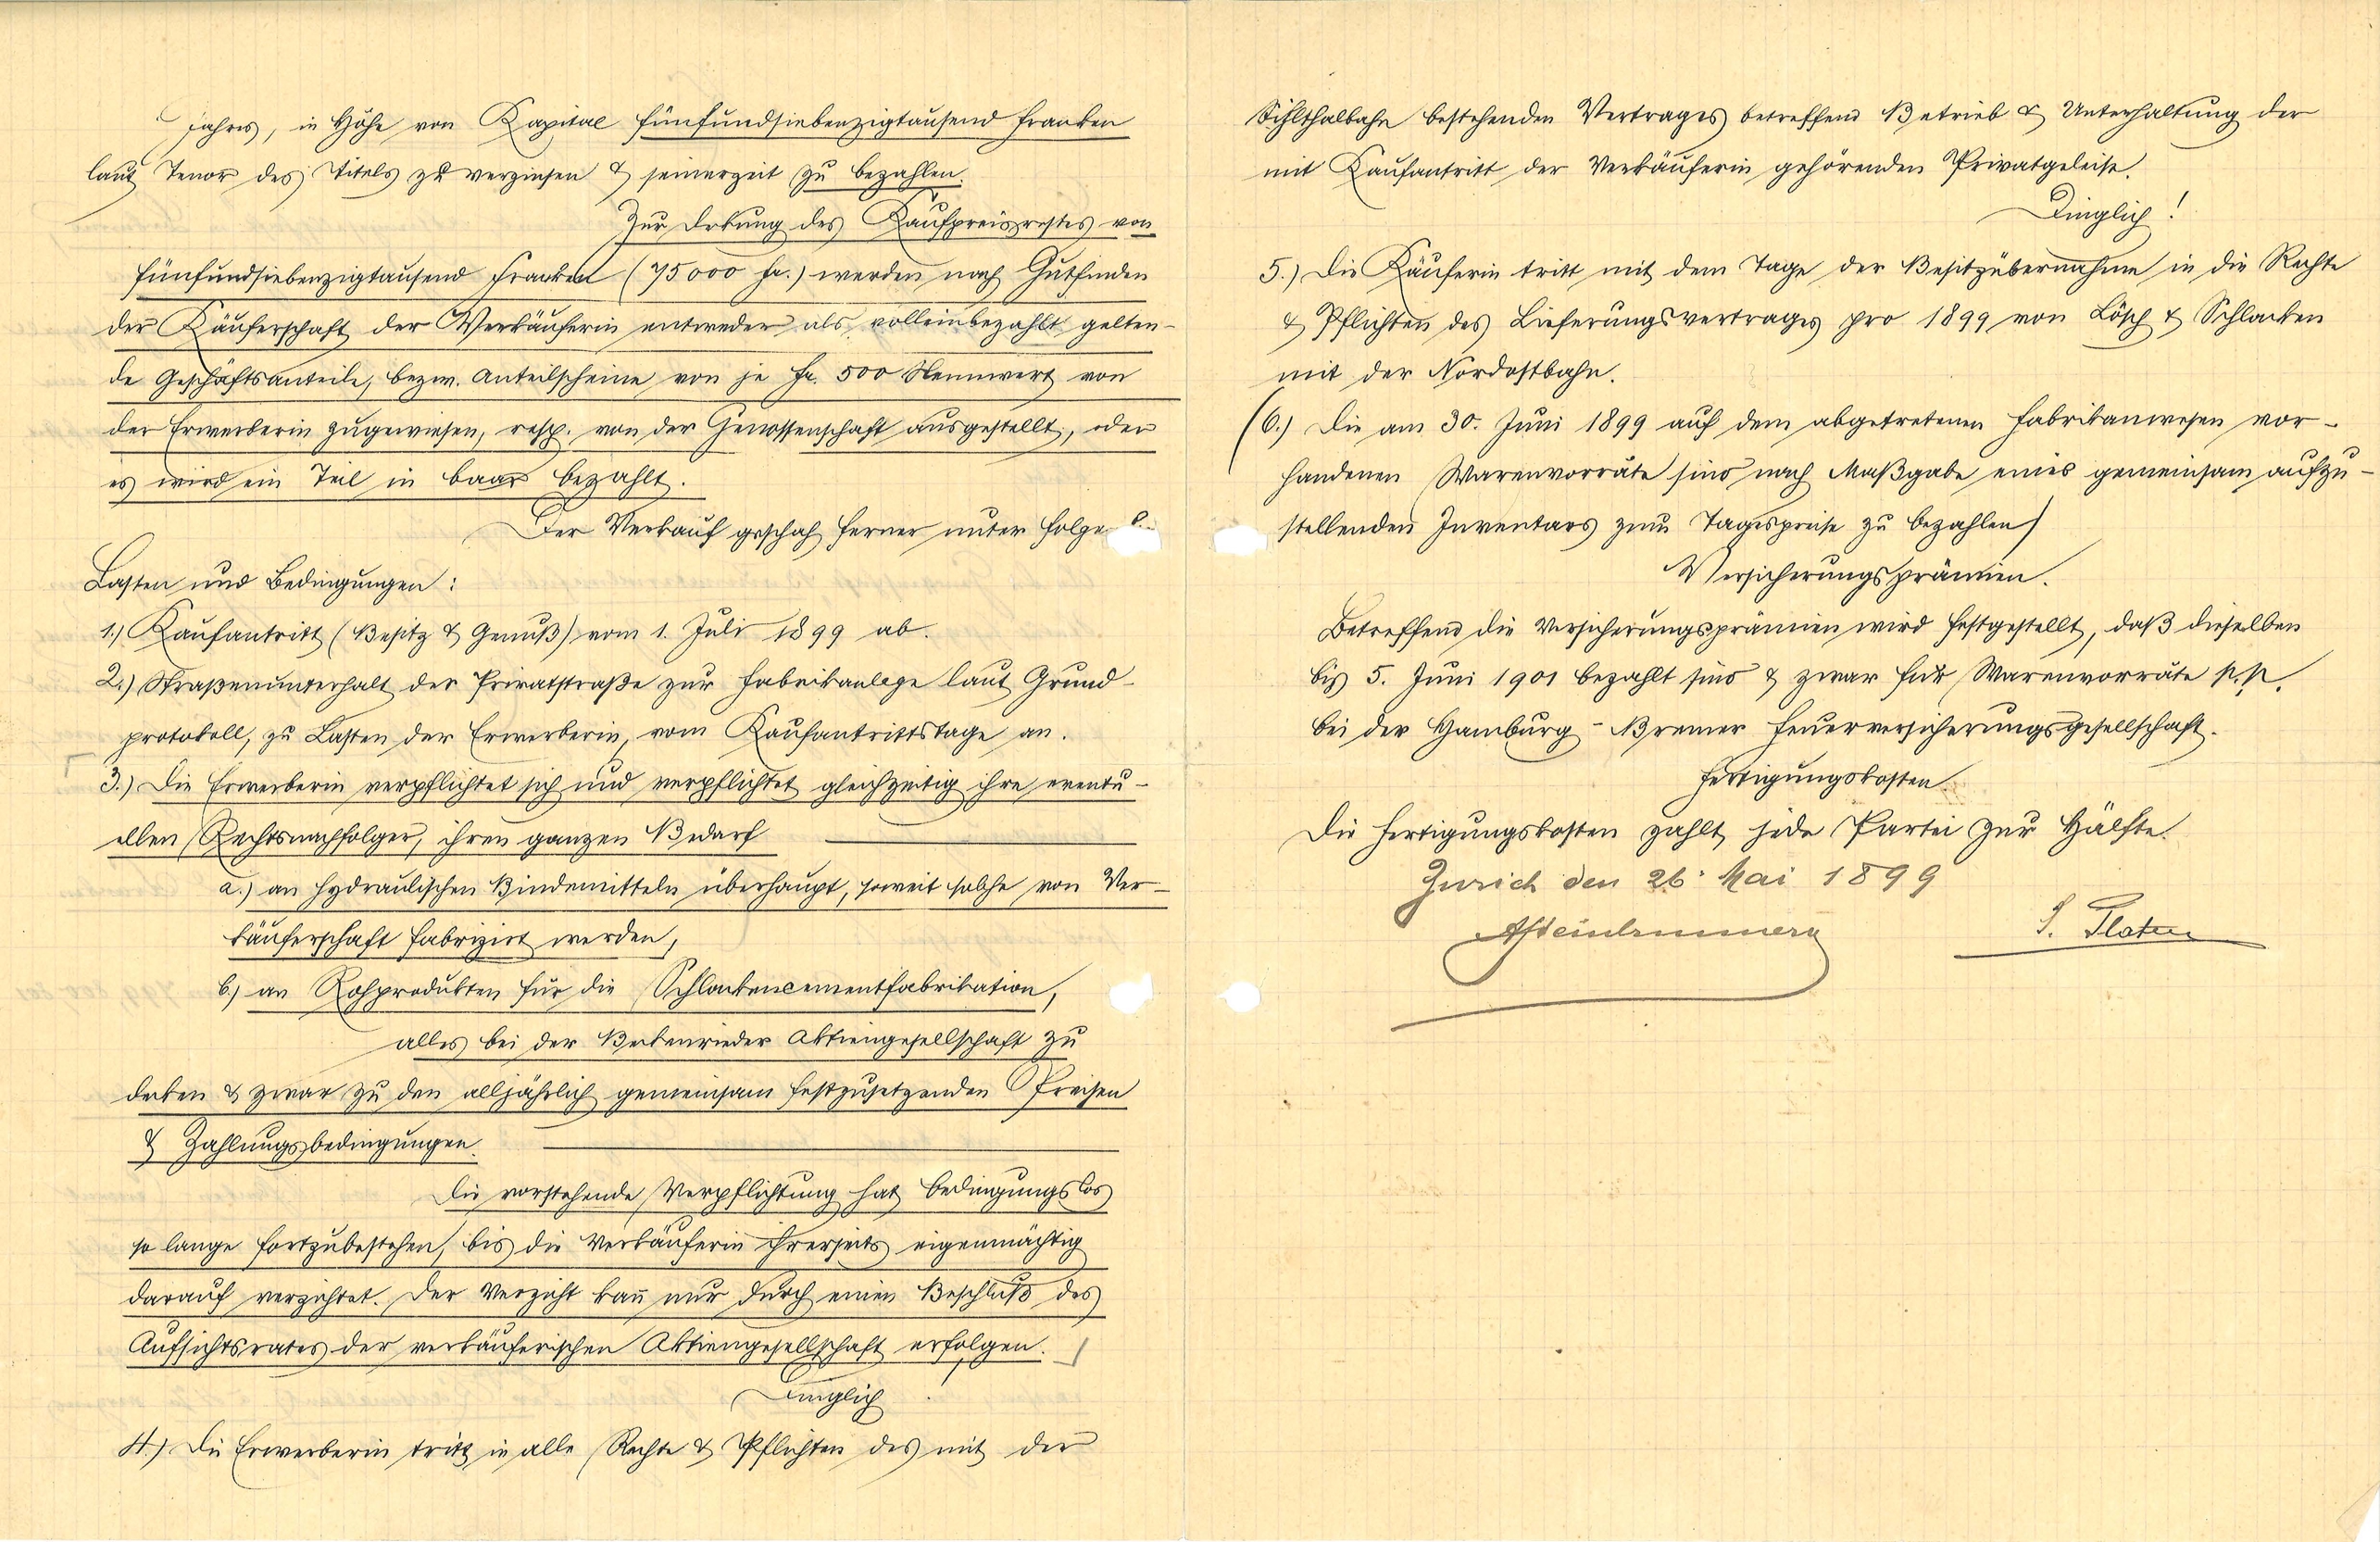 Jahres, in Höhe von Kapital fünfundsiebenzigtausend Franken
laut Tenor des Titels zu verzinsen & seinerzeit zu bezahlen.
Zur Dekung des Kaufpreisrestes von
fünfundsiebenzigtausend Franken (75000 fr.) werden nach Gutfinden
der Käuferschaft der Verkäuferin entweder als volleinbezahlt gelten-
de Geschäftsanteile, bezw. Anteilscheine von je fr. 500 Nennwert von
der Erwerberin zugewiesen, resp. von der Genossenschaft ausgestellt, oder
es wird ein Teil in baar bezahlt.
Der Verkauf geschah ferner unter
Lasten und Bedingungen:
1.) Kaufantritt (Besitz & Genuß) vom 1. Juli 1899 ab.
2.) Straßenunterhalt der Privatstraße zur Fabrikanlage laut Grund-
protokoll, zu Lasten der Erwerberin, vom Kaufantrittstage an.
3.) Die Erwerberin verpflichtet sich und verpflichtet gleichzeitig ihre eventu-
ellen Rechtsnachfolger, ihren ganzen Bedarf
a.) an hydraulischen Bindemitteln überhaupt, soweit solche von Ver-
käuferschaft fabrizirt werden,
b.) an Rohprodukten für die Schlackencementfabrikation,
alles bei der Beckenrieder Aktiengesellschaft zu
decken & zwar zu den alljährlich gemeinsam festzusetzenden Preisen
& Zahlungsbedingungen.
Die vorstehende Verpflichtung hat bedingungslos
so lange fortzubestehen, bis die Verkäuferin ihrerseits eigenmächtig
darauf verzichtet. Der Verzicht kañ nur durch einen Beschluß des
Aufsichtsrates der verkäuferischen Aktiengesellschaft erfolgen.
Dinglich!
4.) Die Erwerberin tritt in alle Rechte & Pflichten des mit der
Sihlthalbahn bestehenden Vertrages betreffend Betrieb & Unterhaltung der
mit Kaufantritt der Verkäuferin gehörenden Privatgeleise.
Dinglich!
5.) Die Käuferin tritt mit dem Tage der Besitzübernahme in die Rechte
& Pflichten des Lieferungsvertrages pro 1899 von Lösch & Schlacken
mit der Nordostbahn.
(6.) Die am 30. Juni 1899 auf dem abgetretenen Fabrikanwesen vor-
handenen Warenvorräte sind nach Maßgabe eines gemeinsam aufzu-
stellenden Inventars zum Tagespreise zu bezahlen)
Versicherungsprämien.
Betreffend die Versicherungsprämien wird festgestellt, daß dieselben
bis 5. Juni 1901 bezahlt sind & zwar für Warenvorräte p.p.
bei der Hamburg-Bremer Feuerversicherungsgesellschaft.
Fertigungskosten.
Die Fertigungskosten zahlt jede Partei zur Hälfte.
Zurich den 26. Mai 1899